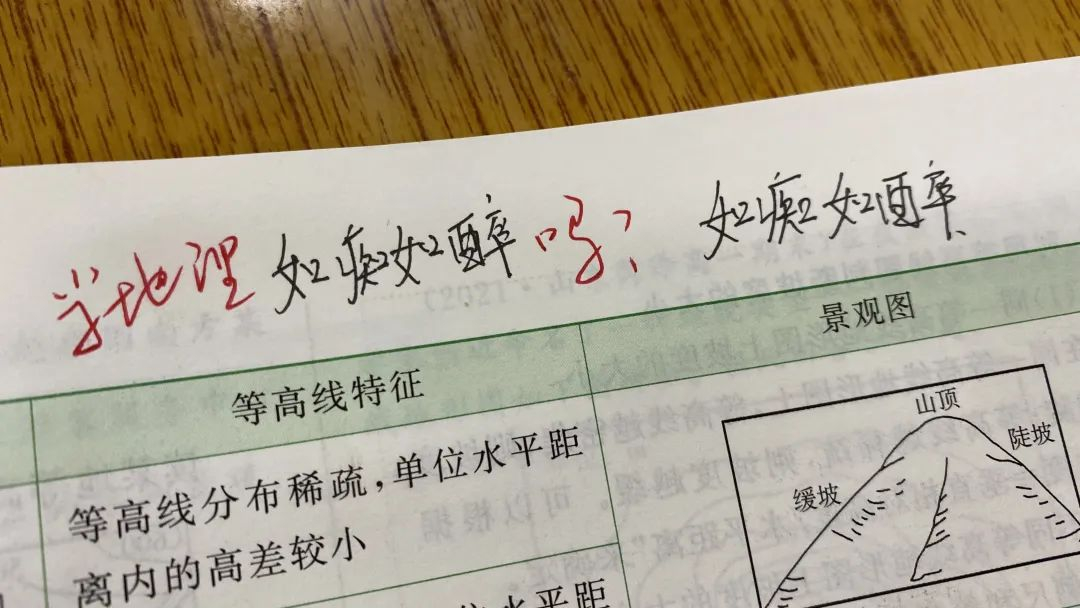 学地理如痴如醉吗? 如痴如醉
等高线特征
景观图
等高线分布稀疏,单位水平距
离内的高差较小
山顶
陡坡
缓坡
位水平距